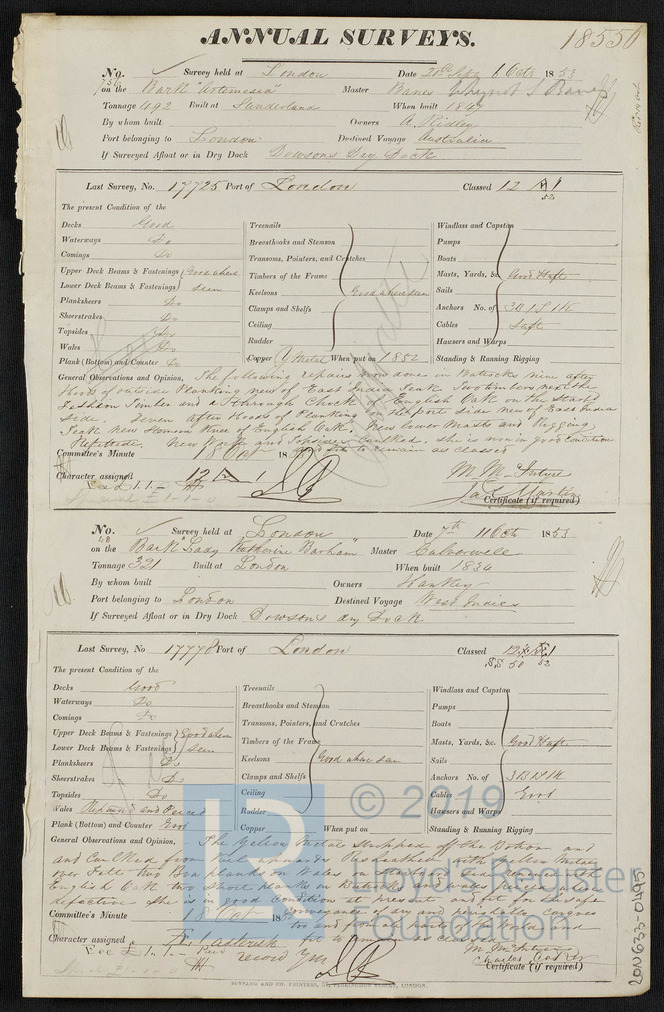 ANNUAL SURVEYS.
18550
No. Survey held at London Date 1 Octr 1853
on the Bark "Artemisia" Master
Tonnage 492 Built at Sunderland When built 1847
By whom built Owners A. Ridley
Port belonging to London Destined Voyage Australia
If Surveyed Afloat or in Dry Dock Dowsons Dry Dock
Last Survey, No. 17725 Port of London Classed 12 A 1
52
The present Condition of the
Decks Good
Waterways Do
Comings Do
Upper Deck Beams & Fastenings Good where
Lower Deck Beams & Fastenings seen
Planksheers Do
Sheerstrakes Do
Topsides Do
Wales Do
Plank (Bottom) and Counter Do
Treenails
Breasthooks and Stemson
Transoms, Pointers, and Crutches
Timbers of the Frame
Keelsons Good where seen
Clamps and Shelfs
Ceiling
Rudder
Copper Y Metal When put on 1852
Windlass and Capstan
Pumps
Boats
Masts, Yards, &c. Good & Saft
Sails
Anchors No. of 3B 1S 1K
Cables Saft
Hausers and Warps
Standing & Running Rigging
General Observations and Opinion, The following repairs now done in Buttocks nine after
Hoods of outside Planking new of East India Teak Two timbers next the
Fashion Timber and a through Chock of English Oak on the Starbd
Side. Seven After Hoods of Planking on the port side new of East India
Teak new Stemson Knee of English Oak. New lower Masts and Rigging
Refitted. New Works and Topsides Caulked. she is now in good Condition
and fit to remain as classed
Committee's Minute 18 Oct 18
Character assigned 12 A 1
Fee £1.1.-
M. McIntyre
Jas Martin
Certificate (if required)
No. Survey held at London Date 7th 11 Octr 1853
48
on the Bark "Lady Katherine Barham" Master
Tonnage 321 Built at London When built 1834
By whom built Owners Hankey
Port belonging to London Destined Voyage West Indies
If Surveyed Afloat or in Dry Dock Dowsons dry Dock.
Last Survey, No. 17778 Port of London Classed
SS 50 52
The present Condition of the
Decks Good
Waterways Do
Comings Do
Upper Deck Beams & Fastenings Good where
Lower Deck Beams & Fastenings seen
Planksheers Do
Sheerstrakes Do
Topsides Do
Wales Repaired and Pieced
Plank (Bottom) and Counter Good
Treenails
Breasthooks and Stemson
Transoms, Pointers, and Crutches
Timbers of the Frame
Keelsons Good where seen
Clamps and Shelfs
Ceiling
Rudder
Copper When put on
Windlass and Capstan
Pumps
Boats
Masts, Yards, &c. Good & Saft
Sails
Anchors No. of 3B 1S 1K
Cables Good
Hausers and Warps
Standing & Running Rigging
General Observations and Opinion, The Yellow Metal stripped off the Bottom and
and Caulked from Keel upwards Resheathed with Yellow Metal
over Felt two Bow planks in Wales on starboard side renewed with
English Oak two Short planks in Buttocks and Wales pieced where
defective she is in good Condition at present and fit for the safe
conveyance of dry and perishable Cargoes
Committee's Minute Oct 18 to and from all parts of the World and
Character assigned Æ 1 asterisk fit to remain as classed
Fee £1.1.- record YM
M. McIntyre
Certificate (if required)
© 2019
Lloyd's Register
Foundation
LON633-0495